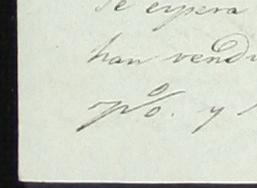 se espera
han vendi
7 %. y